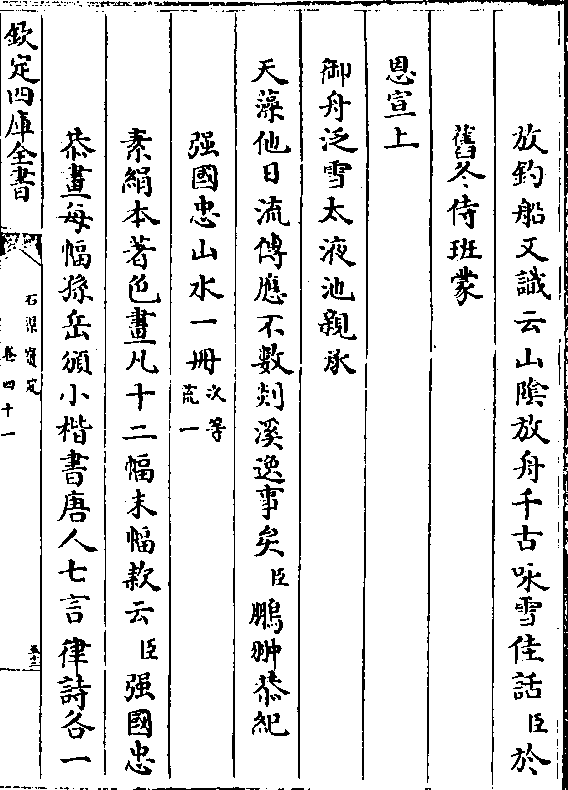 放釣船又識云山陰放舟千古咏雪佳話臣於
舊冬侍班蒙
恩宣上
御舟泛雪太液池親承
天藻他日流傳應不數剡溪逸事矣臣鵬翀恭紀
强國忠山水一冊次等荒一
素絹本著色畫凡十二幅末幅款云臣强國忠
恭畫每幅孫岳頒小楷書唐人七言律詩各一
欽定四庫全書
石渠寳笈
卷四十一